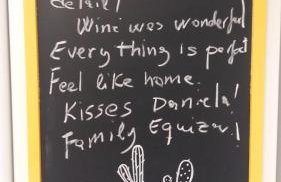 detail!
Wine was wonderful
Every thing is perfect
Feel like home.
Kisses Daniela!
Family